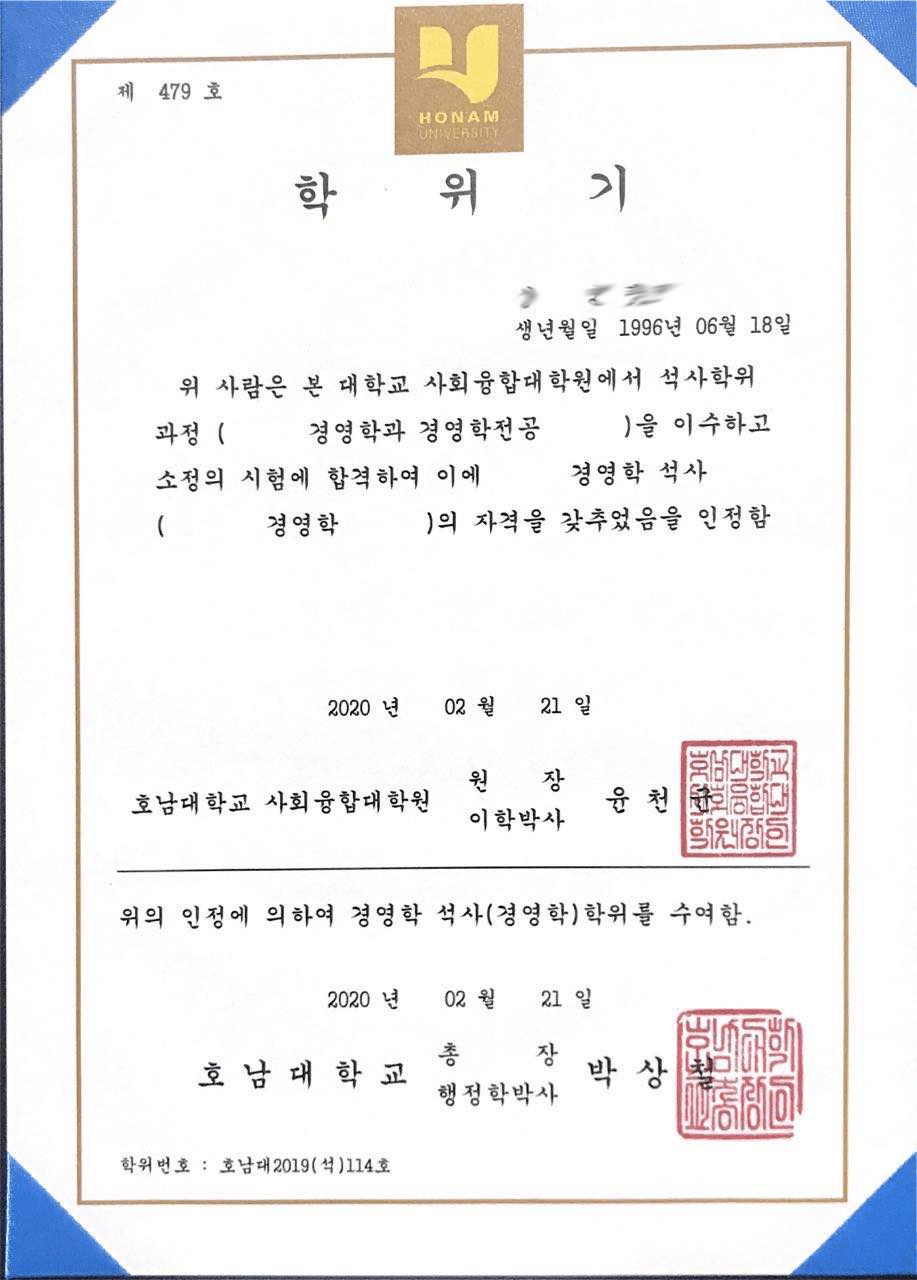 제 479 호
HONAM
UNIVERSITY
학 위 기
생년월일 1996년 06월 18일
위 사람은 본 대학교 사회융합대학원에서 석사학위
과정 ( 경영학과 경영학전공 )을 이수하고
소정의 시험에 합격하여 이에 경영학 석사
( 경영학 )의 자격을 갖추었음을 인정함
2020 년 02 월 21 일
호남대학교 사회융합대학원 원 장 이학박사 윤 천 균
위의 인정에 의하여 경영학 석사(경영학)학위를 수여함.
2020 년 02 월 21 일
호 남 대 학 교 총 장 행정학박사 박 상 철
학위번호 : 호남대2019(석)114호